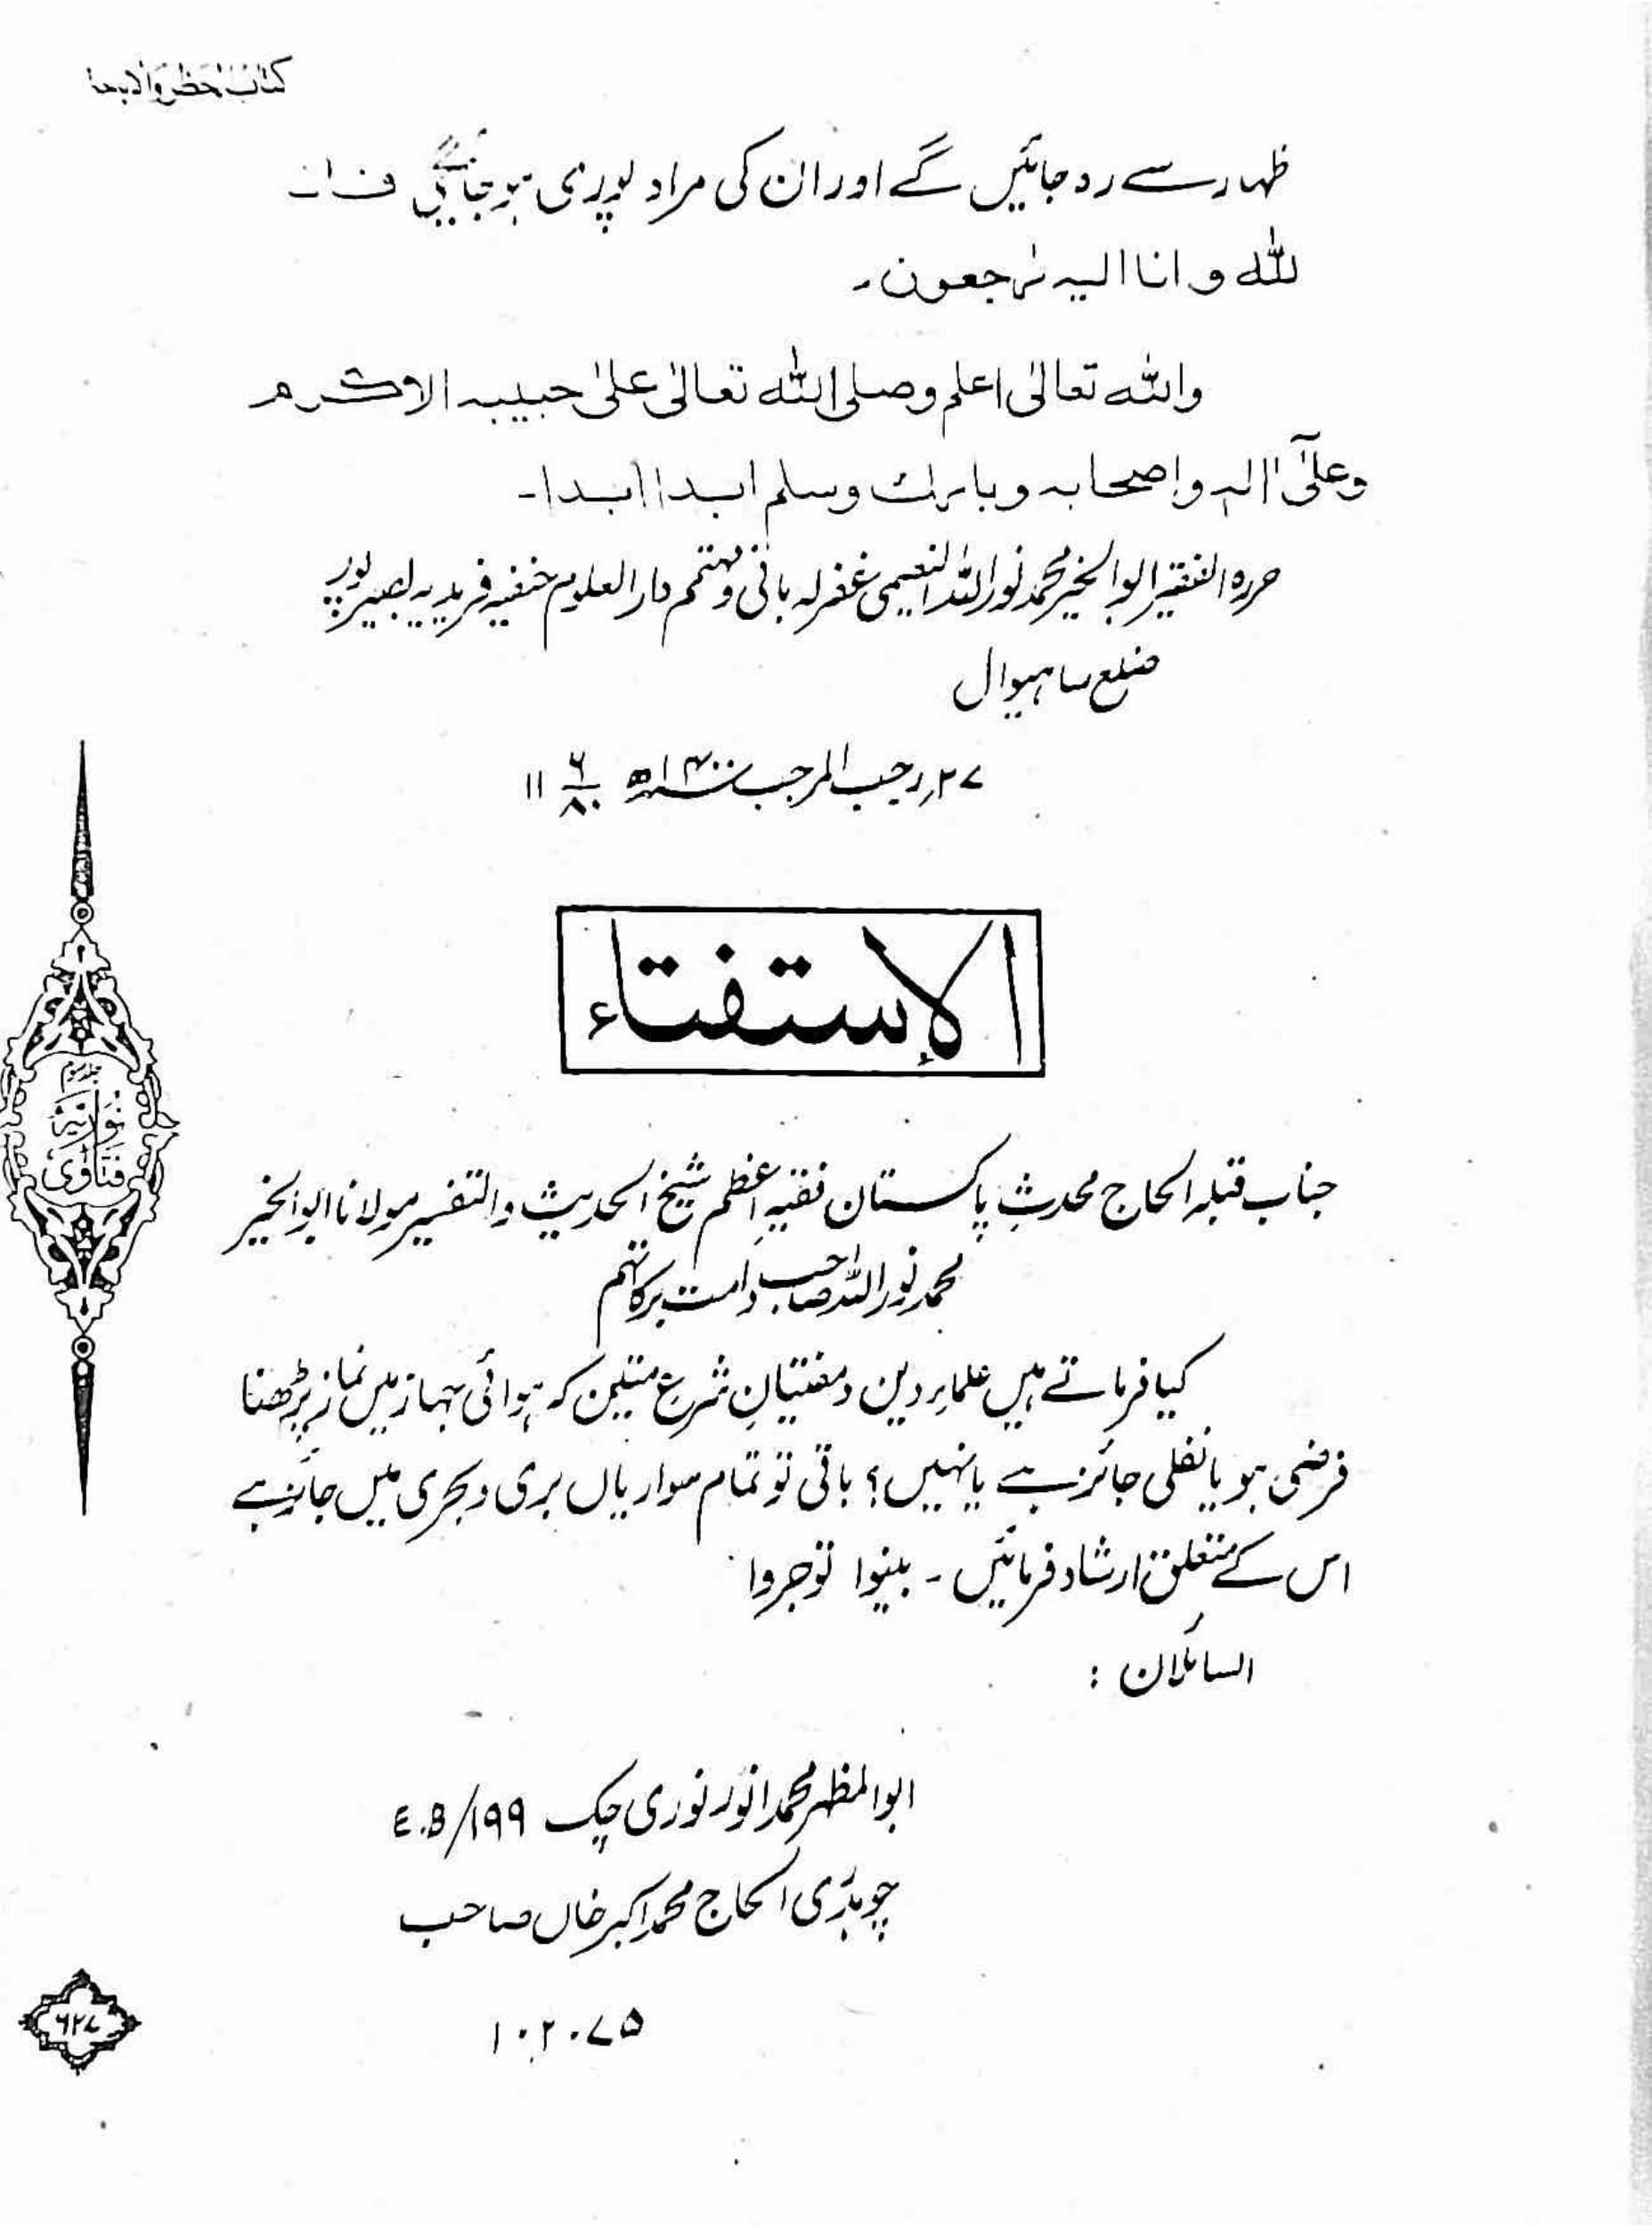 کتاب الحظر والاباحۃ
ظہار سے رہ جائیں گے اور ان کی مراد پوری ہو جائیگی
للہ و انا الیہ راجعون۔
واللہ تعالیٰ اعلم وصلی اللہ تعالیٰ علیٰ حبیبہ الاکرم
وعلیٰ اٰلہ واصحابہ وبارک وسلم ابدا ابدا۔
حررہ الفقیر ابوالخیر محمد نور اللہ النعیمی غفرلہ بانی و مہتمم دارالعلوم حنفیہ فریدیہ بصیرپور
ضلع ساہیوال
۲۷ رجب المرجب ۱۴۰۰ھ ۶/۸۰ ۱۱
الاِستفتاء
جناب قبلہ الحاج محدثِ پاکستان فقیہِ اعظم شیخ الحدیث والتفسیر مولانا ابوالخیر
محمد نور اللہ صاحب دامت برکاتہم
کیا فرماتے ہیں علماءِ دین و مفتیانِ شرع متین کہ ہوائی جہاز میں نماز پڑھنا
فرضی ہو یا نفلی جائز ہے یا نہیں؟ باقی تو تمام سواریاں بری و بحری میں جائز ہے
اس کے متعلق ارشاد فرمائیں ۔ بینوا توجروا
السائلان :
ابوالمظہر محمد انور نوری چک ۱۹۹/E.B
چوہدری الحاج محمد اکبر خاں صاحب
۱۰.۲.۷۵
جلد سوم
فتاوی نوریہ
۶۲۷